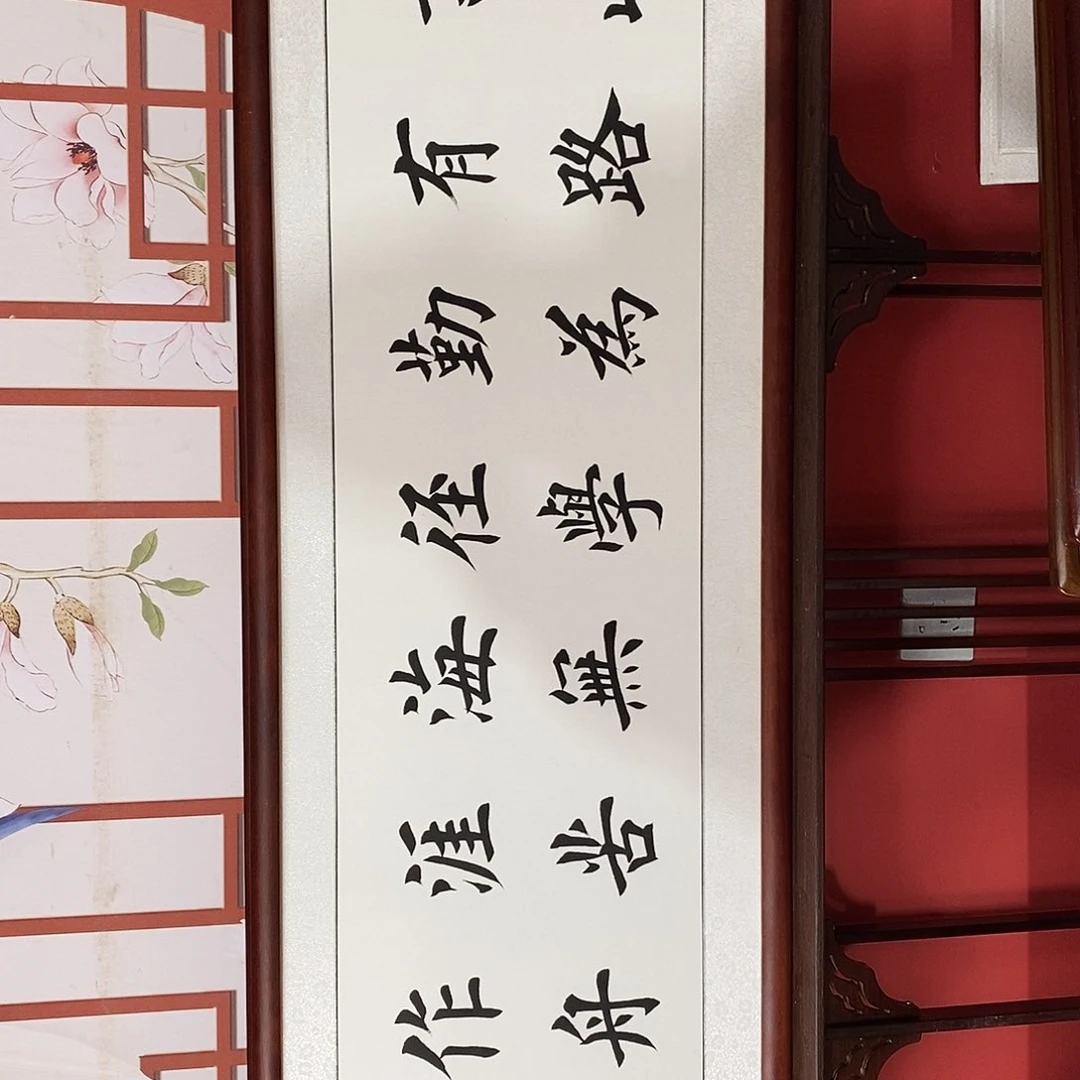 有路
勤為
径學
海無
涯苦
作舟